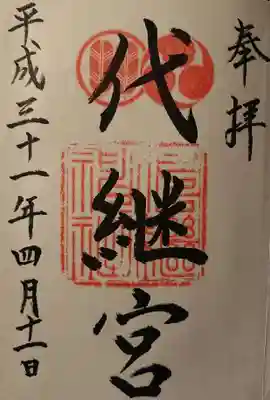 奉拝
代継宮
平成三十一年四月十一日